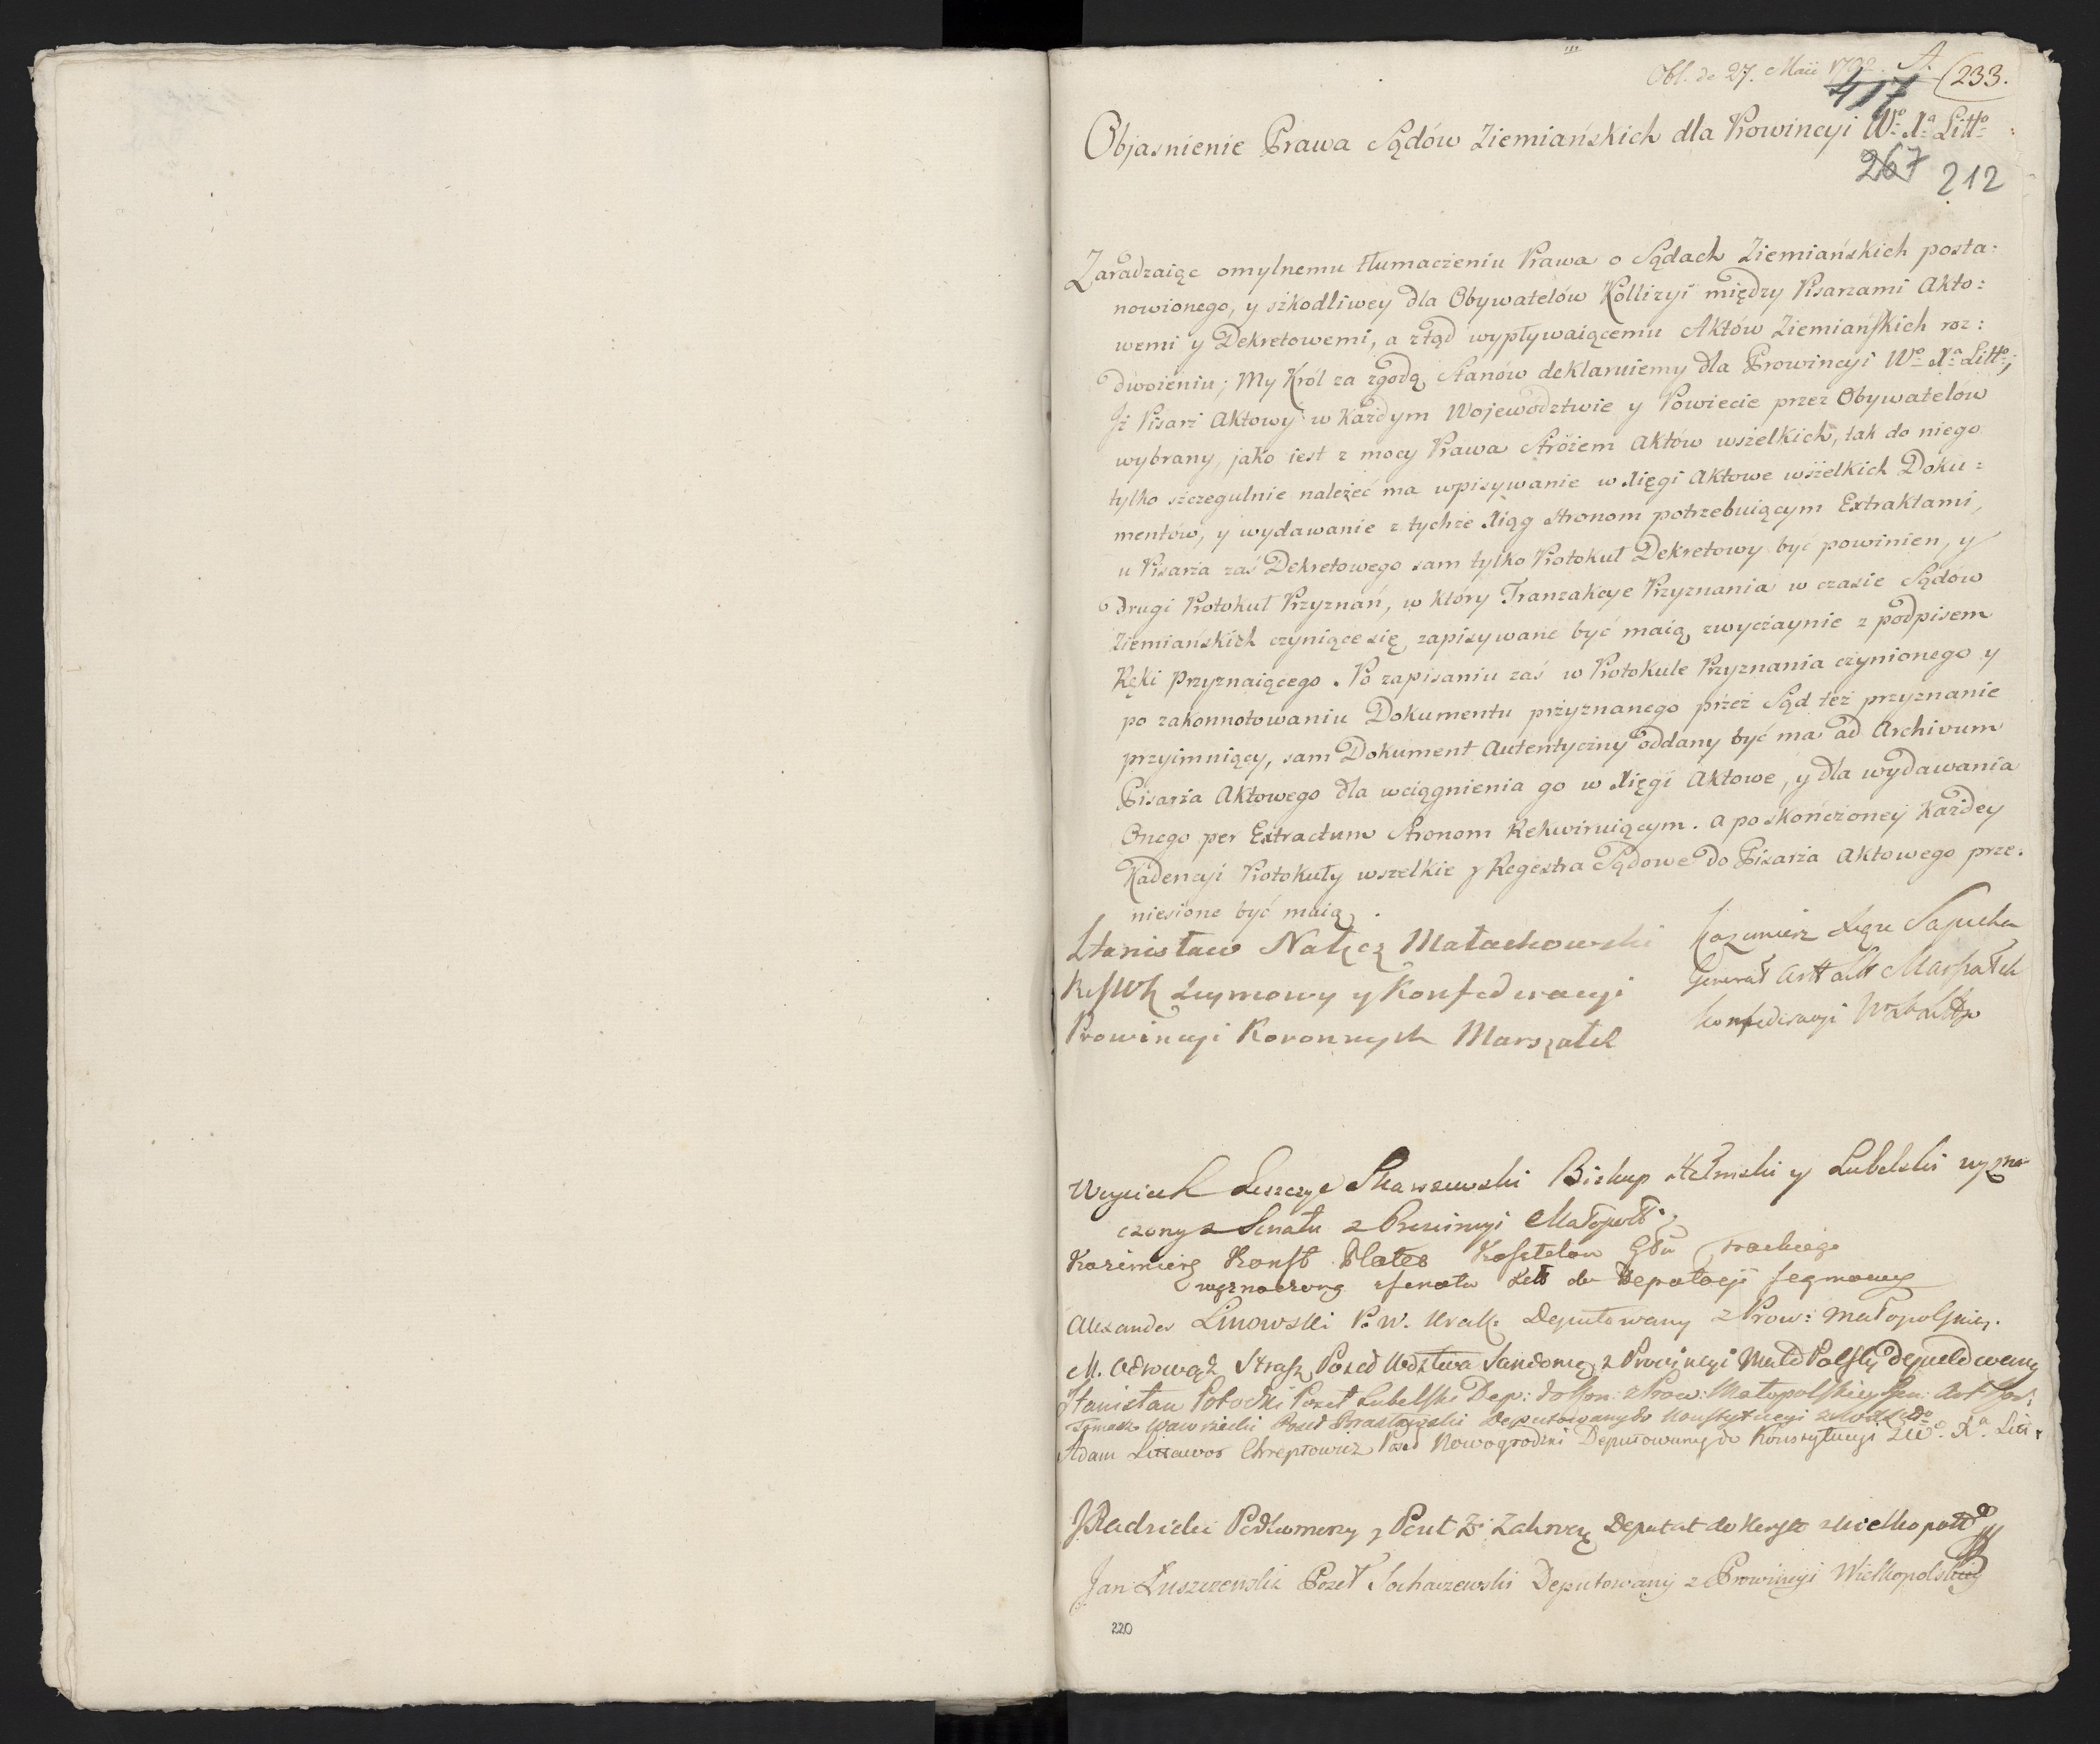 Obl. de 27. Maii 1792. A. 233.
417
Objasnienie Prawa Sądów Ziemiańskich dla Prowincyi Wº Xª Littº
267 212
Zaradzaiąc omylnemu tłumaczeniu Prawa o Sądach Ziemiańskich posta:
nowionego, y szkodliwey dla Obywatelów Kollizyi między Pisarzami Akto:
wemi y Dekretowemi, a ztąd wypływaiącemu Aktów Ziemiańskich roz:
dwoieniu; My Król za zgodą Stanów deklaruiemy dla Prowincyi Wº Xª Littº;
Iż Pisarz Aktowy w Każdym Wojewodztwie y Powiecie przez Obywatelów
wybrany, jako iest z mocy Prawa Stróżem Aktów wszelkich, tak do niego
tylko szczegulnie należeć ma wpisywanie w Xięgi Aktowe wszelkich Doku:
mentów, y wydawanie z tychże Xiąg stronom potrzebuiącym Extraktami,
u Pisarza zaś Dekretowego sam tylko Protokuł Dekretowy być powinien, y
drugi Protokuł Przyznań, w który Tranzakcye Przyznania w czasie Sądów
Ziemiańskich czyniące się, zapisywane być maią zwyczaynie z podpisem
Ręki Przyznaiącego. Po zapisaniu zaś w Protokule Przyznania czynionego y
po zakonnotowaniu Dokumentu przyznanego przez Sąd też przyznanie
przyimuiący, sam Dokument Autentyczny oddany być ma ad Archivum
Pisarza Aktowego dla wciągnienia go w Xięgi Aktowe, y dla wydawania
Onego per Extractum Stronom Rekwiruiącym. a po skończoney Każdey
Kadencyi Protokuły wszelkie y Regestra Sądowe do Pisarza Aktowego prze:
niesione być maią.
Stanisław Nałęcz Małachowski
Kazimierz Xże Sapieha
Generał Artt Litt Marszałek
Seymowy y Konfederacyi
Konfederacyi
Prowincyi Koronnych Marszałek
Woyciech Leszczyc Skarszewski Biskup Chełmski y Lubelski wyzna
czony z Senatu z Prowincyi Małopolski
Kazimierz Konst Plater Kasztelan Trockiego
wyznaczony z Senatu Litt do Deputacyi Seymowey
Alexander Linowski P. W. Krak. Deputowany z Prow: Małopolskiey.
M. Odrowąż Strasz Poseł Wdztwa Sandomę z Prowincyi Mało Polsky deputowany
Stanisław Potocki Poseł Lubelski Dep: do Kon: z Prow: Małopolskiey
Tomasz Wawrzecki Poseł Brasławski Deputowany do Konstytucyi
Adam Littawor Chreptowicz Poseł Nowogrodzki Deputowany do Konstytucyi z Wº. Xª. Litt.
J Radzicki Podkomorzy y Poseł Z. Zakrocz Deputat do Konst z wielkopols
Jan Łuszczewski Poseł Sochaczewski Deputowany z Prowincyi Wielkopolskiey
220